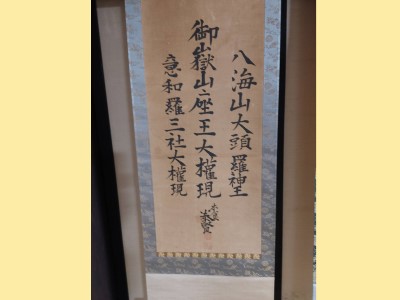 八海山大頭羅神王
御嶽山座王大權現
意和羅三社大權現